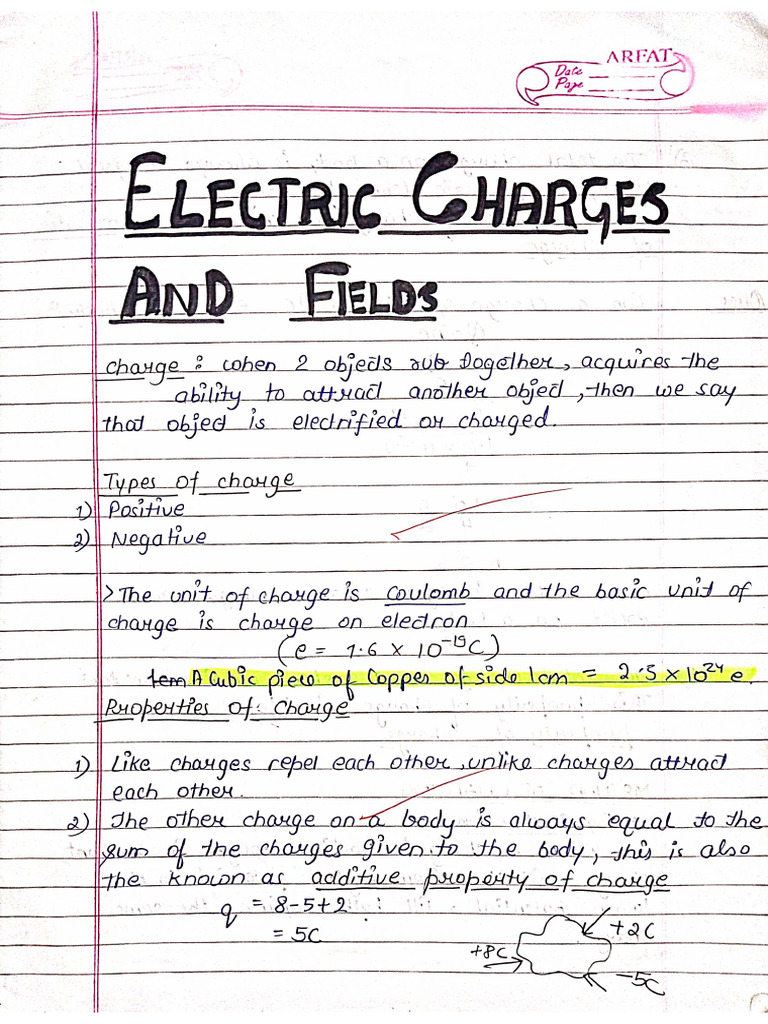 ARFAT
Date
Page
ELECTRIC CHARGES
AND FIELDS
Charge : when 2 objects rub together, acquires the
ability to attract another object, then we say
that object is electrified or charged.
Types of charge
1) Positive
2) Negative
> The unit of charge is Coulomb and the basic unit of
charge is charge on electron
(e = 1.6 x 10⁻¹⁹C)
1cm A Cubic piece of Copper of side 1cm = 2.5 x 10²⁴ e.
Properties of Charge
1) Like charges repel each other, unlike charges attract
each other.
2) The other charge on a body is always equal to the
sum of the charges given to the body, this is also
the known as additive property of charge
q = 8-5+2
= 5C
+2C
+8C
-5C